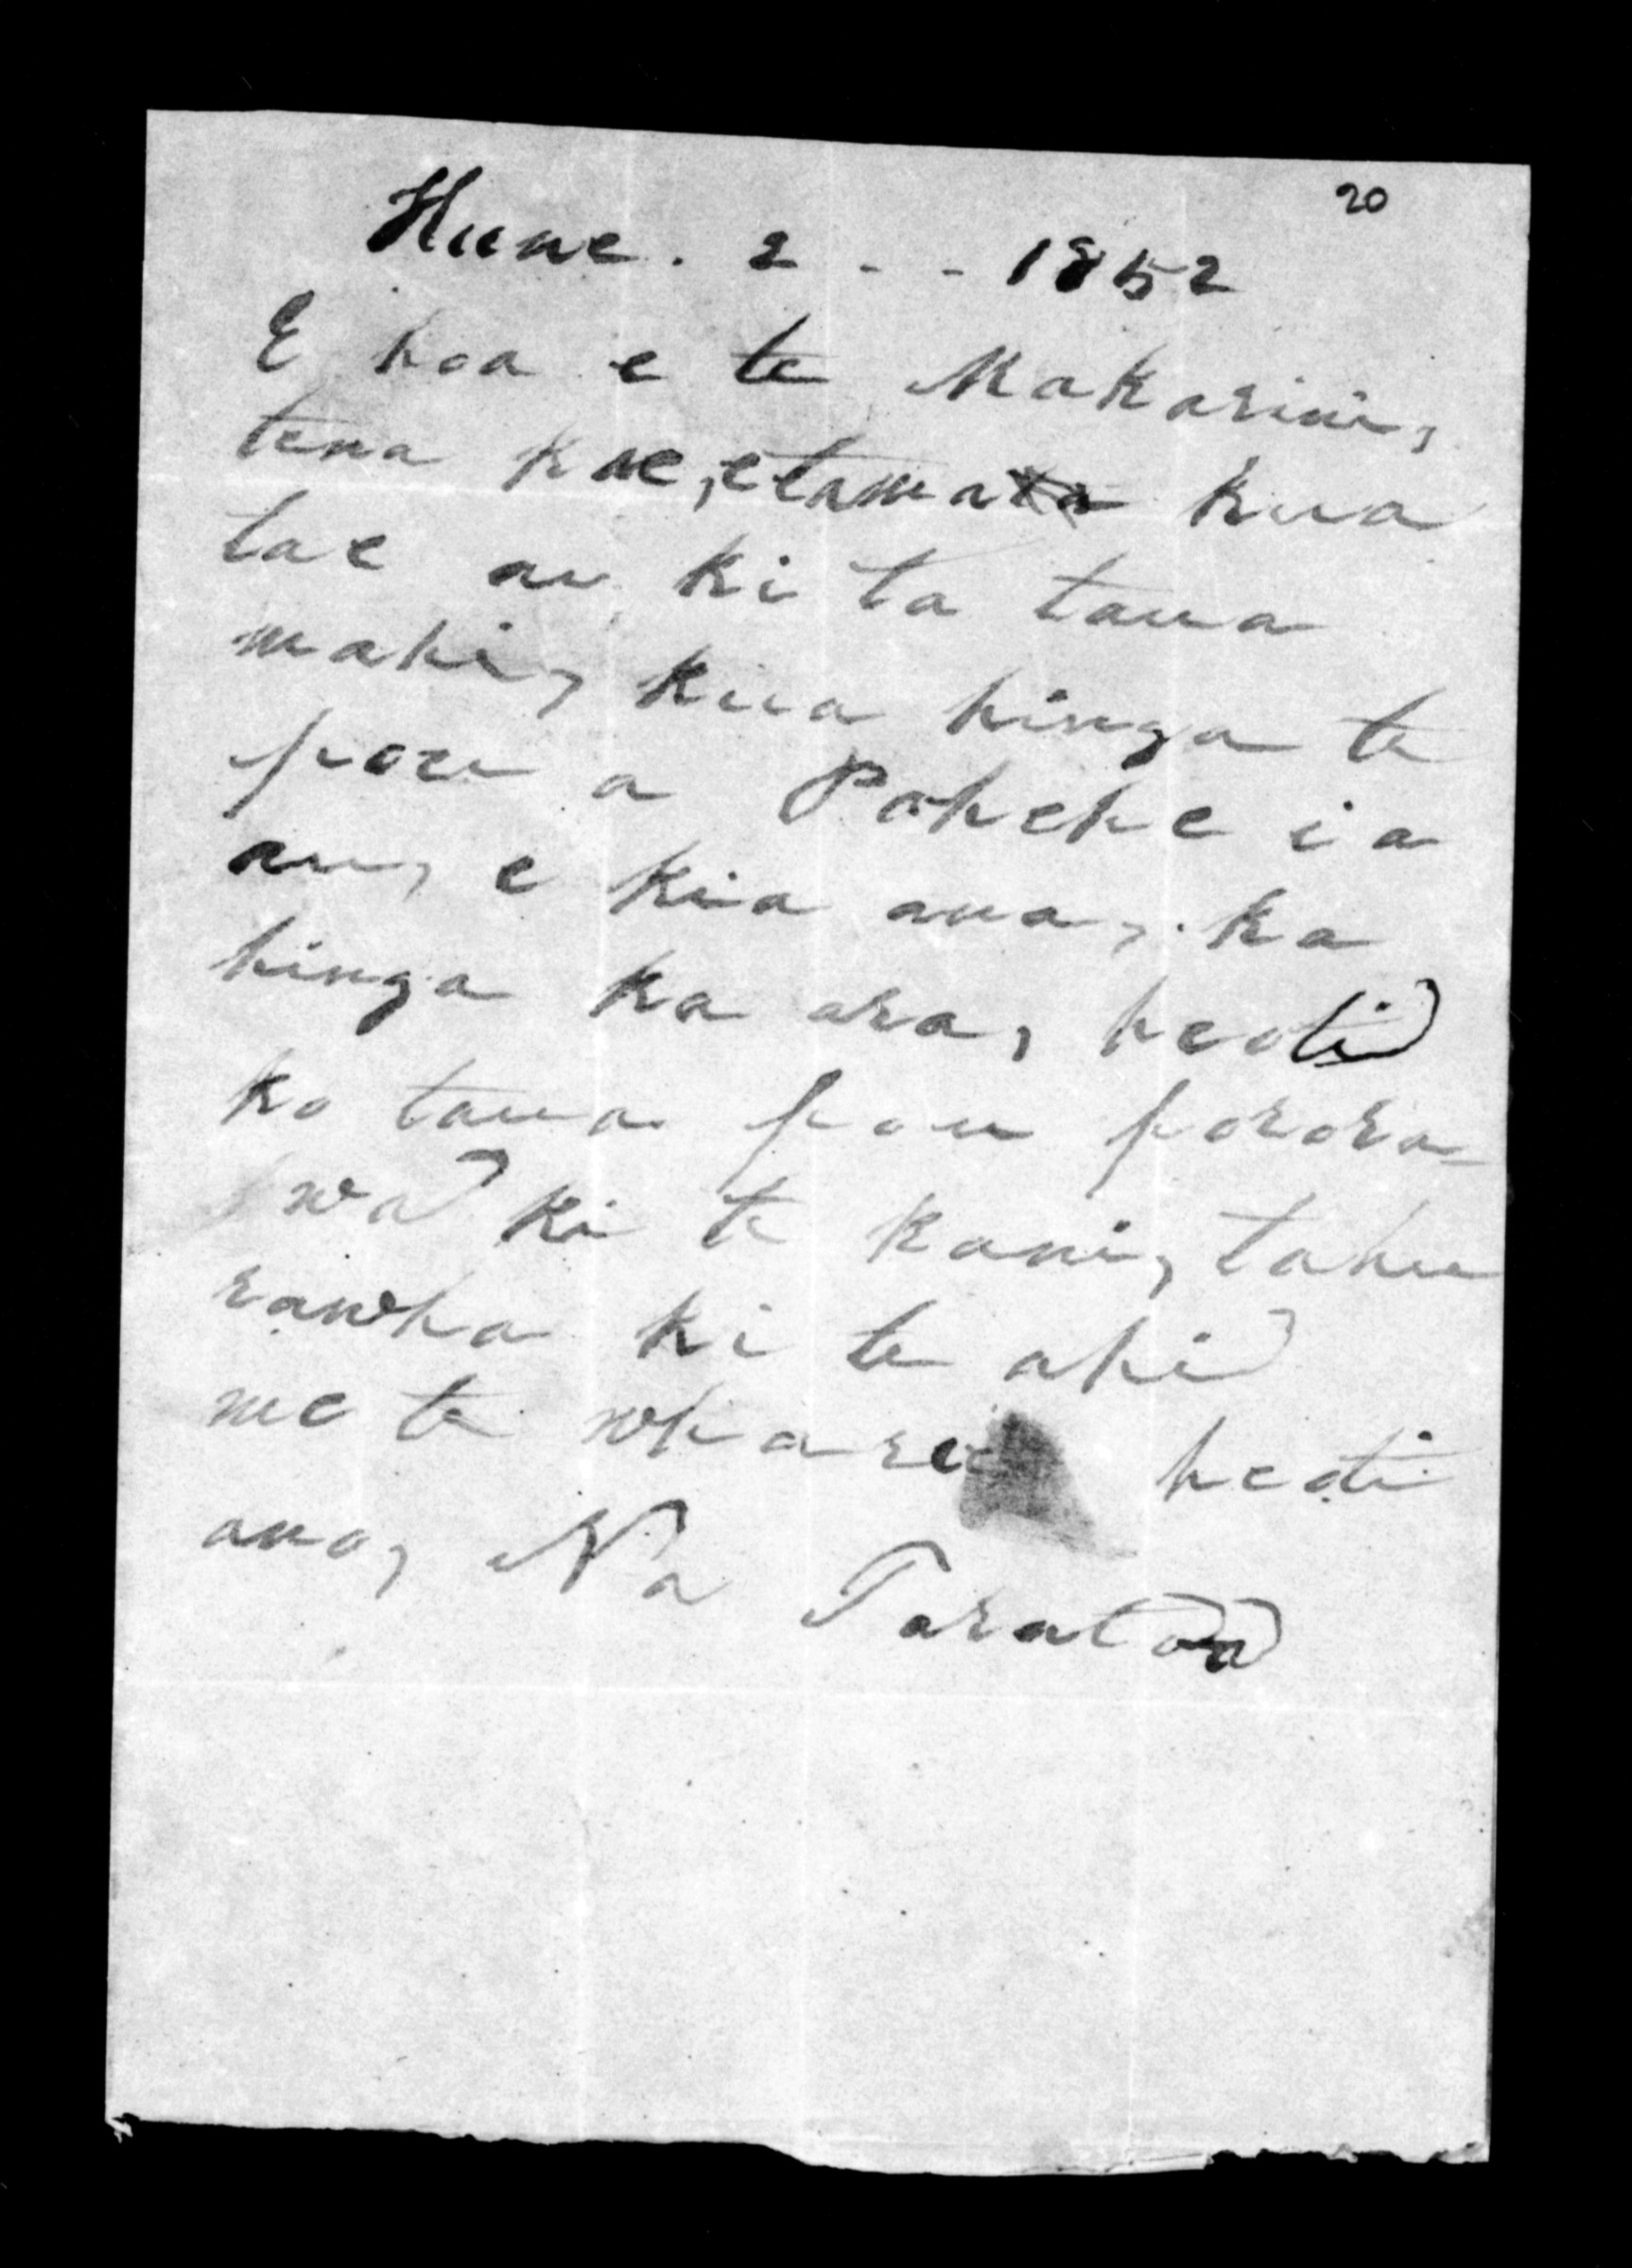 20
Hune . 2 - - 1852
E hoa e te Makarini,
tena koe, etama kua
tae au ki ta taua
mahi, kua hinga te
pou a Pohehe i a
au, e kiia ana, ka
hinga ka ara, heoti
ko taua pou porora-
wa ki te kani, tahu
rawha ki te ahi
me te whare heoti
ano, Na Taratoa